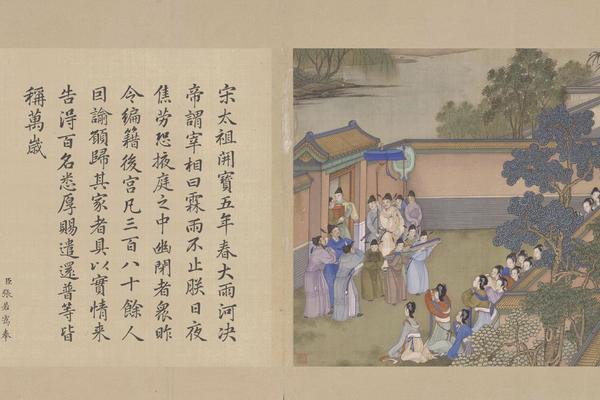 宋太祖開寶五年春大雨河决
帝謂宰相曰霖雨不止朕日夜
焦勞恐掖庭之中幽閉者衆昨
令編籍後宮凡三百八十餘人
因諭願歸其家者具以實情來
告得百名悉厚賜遣還普等皆
稱萬歲
臣張若靄奉